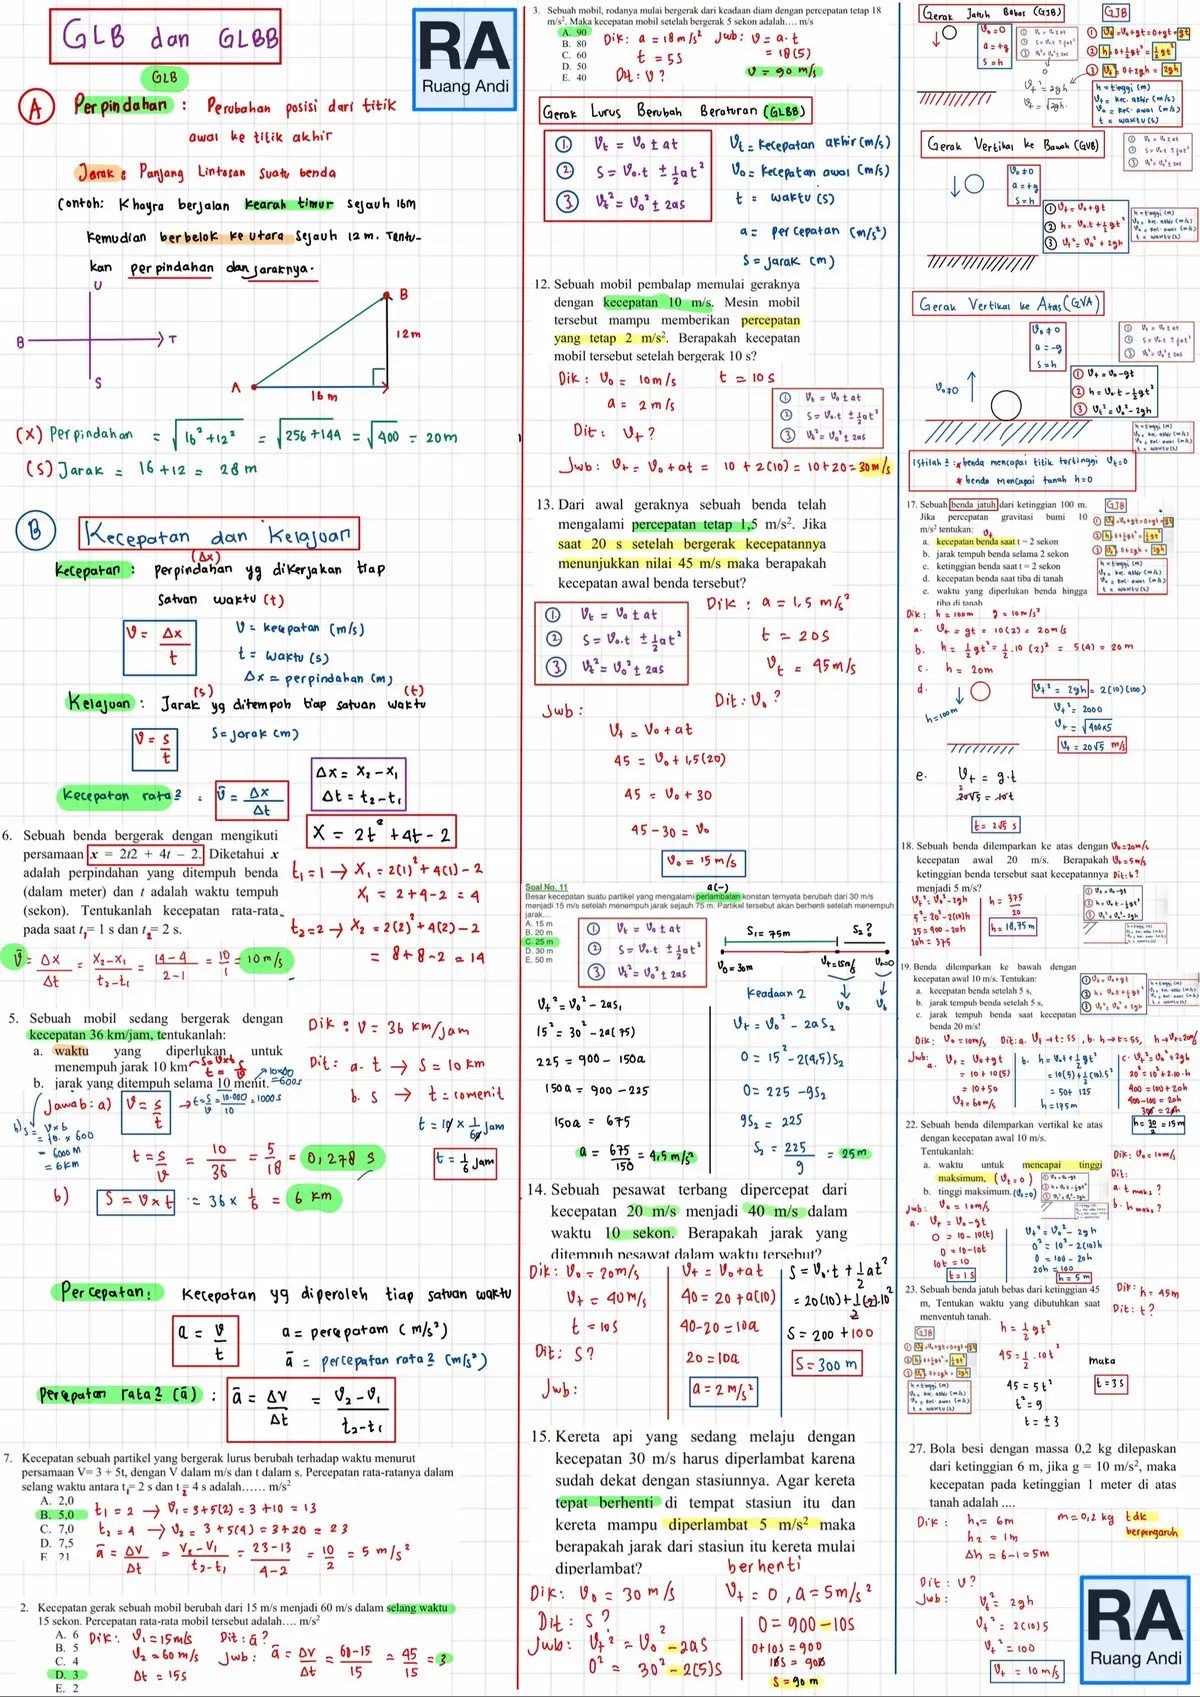 GLB dan GLBB
RA
Ruang Andi
GLB
A Perpindahan : Perubahan posisi dari titik
awal ke titik akhir
Jarak : Panjang Lintasan suatu benda
Contoh: Khayra berjalan kearah timur sejauh 16m
kemudian berbelok ke utara sejauh 12 m. Tentu-
kan perpindahan dan jaraknya.
U
B
T
S
A
B
12m
16 m
(x) Perpindahan = √16² + 12² = √256 + 144 = √400 = 20m
(s) Jarak = 16 + 12 = 28 m
B Kecepatan dan Kelajuan
(Δx)
Kecepatan : perpindahan yg dikerjakan tiap
satuan waktu (t)
v = Δx/t
v = kecepatan (m/s)
t = waktu (s)
Δx = perpindahan (m)
(s) (t)
Kelajuan : Jarak yg ditempoh tiap satuan waktu
v = s/t
s = jarak (m)
Kecepatan rata² : v̄ = Δx/Δt
Δx = x₂ - x₁
Δt = t₂ - t₁
6. Sebuah benda bergerak dengan mengikuti
persamaan x = 2t2 + 4t – 2. Diketahui x
adalah perpindahan yang ditempuh benda
(dalam meter) dan t adalah waktu tempuh
(sekon). Tentukanlah kecepatan rata-rata
pada saat t₁= 1 s dan t₂= 2 s.
x = 2t² + 4t - 2
t₁ = 1 → x₁ = 2(1)² + 4(1) - 2
x₁ = 2 + 4 - 2 = 4
t₂ = 2 → x₂ = 2(2)² + 4(2) - 2
= 8 + 8 - 2 = 14
v̄ = Δx/Δt = x₂-x₁/t₂-t₁ = 14-4/2-1 = 10/1 = 10 m/s
5. Sebuah mobil sedang bergerak dengan
kecepatan 36 km/jam, tentukanlah:
a. waktu yang diperlukan untuk
menempuh jarak 10 km
b. jarak yang ditempuh selama 10 menit. = 600s
Dik : v = 36 km/jam
Dit : a. t → s = 10 km
b. s → t = 10 menit
t = 10 × 1/60 jam
t = 1/6 jam
Jawab : a) v = s/t → t = s/v = 10.000/10 = 1000 s
b) s = v × t
= 10 × 600
= 6000 m
= 6 km
t = s/v = 10/36 = 5/18 = 0,278 s
b) s = v × t = 36 × 1/6 = 6 km
Percepatan : Kecepatan yg diperoleh tiap satuan waktu
a = v/t
a = percepatan (m/s²)
ā = percepatan rata² (m/s²)
Percepatan rata² (ā) : ā = Δv/Δt = v₂-v₁/t₂-t₁
7. Kecepatan sebuah partikel yang bergerak lurus berubah terhadap waktu menurut
persamaan V= 3 + 5t, dengan V dalam m/s dan t dalam s. Percepatan rata-ratanya dalam
selang waktu antara t₁= 2 s dan t₂= 4 s adalah…… m/s²
A. 2,0
B. 5,0
C. 7,0
D. 7,5
E. 21
t₁ = 2 → v₁ = 3+5(2) = 3+10 = 13
t₂ = 4 → v₂ = 3+5(4) = 3+20 = 23
ā = Δv/Δt = v₂-v₁/t₂-t₁ = 23-13/4-2 = 10/2 = 5 m/s²
2. Kecepatan gerak sebuah mobil berubah dari 15 m/s menjadi 60 m/s dalam selang waktu
15 sekon. Percepatan rata-rata mobil tersebut adalah…. m/s²
A. 6
B. 5
C. 4
D. 3
E. 2
Dik : v₁ = 15 m/s
v₂ = 60 m/s
Δt = 15s
Dit : ā ?
Jwb : ā = Δv/Δt = 60-15/15 = 45/15 = 3
3. Sebuah mobil, rodanya mulai bergerak dari keadaan diam dengan percepatan tetap 18
m/s². Maka kecepatan mobil setelah bergerak 5 sekon adalah…. m/s
A. 90
B. 80
C. 60
D. 50
E. 40
Dik : a = 18 m/s²
t = 5s
Dit : v ?
Jwb : v = a · t
= 18(5)
v = 90 m/s
Gerak Lurus Berubah Beraturan (GLBB)
1. vt = v₀ ± at
2. s = v₀.t ± ½at²
3. vt² = v₀² ± 2as
vt = kecepatan akhir (m/s)
v₀ = kecepatan awal (m/s)
t = waktu (s)
a = percepatan (m/s²)
s = jarak (m)
12. Sebuah mobil pembalap memulai geraknya
dengan kecepatan 10 m/s. Mesin mobil
tersebut mampu memberikan percepatan
yang tetap 2 m/s². Berapakah kecepatan
mobil tersebut setelah bergerak 10 s?
Dik : v₀ = 10m/s t = 10 s
a = 2 m/s
Dit : vt ?
1 vt = v₀ ± at
2 s = v₀.t ± ½at²
3 vt² = v₀² ± 2as
Jwb : vt = v₀ + at = 10 + 2(10) = 10+20 = 30 m/s
13. Dari awal geraknya sebuah benda telah
mengalami percepatan tetap 1,5 m/s². Jika
saat 20 s setelah bergerak kecepatannya
menunjukkan nilai 45 m/s maka berapakah
kecepatan awal benda tersebut?
1 vt = v₀ ± at
2 s = v₀.t ± ½at²
3 vt² = v₀² ± 2as
Dik : a = 1,5 m/s²
t = 20s
vt = 45m/s
Dit : v₀ ?
Jwb :
vt = v₀ + at
45 = v₀ + 1,5(20)
45 = v₀ + 30
45 - 30 = v₀
v₀ = 15 m/s
Soal No. 11
a(-)
Besar kecepatan suatu partikel yang mengalami perlambatan konstan ternyata berubah dari 30 m/s
menjadi 15 m/s setelah menempuh jarak sejauh 75 m. Partikel tersebut akan berhenti setelah menempuh
jarak....
A. 15 m
B. 20 m
C. 25 m
D. 30 m
E. 50 m
1 vt = v₀ ± at
2 s = v₀.t ± ½at²
3 vt² = v₀² ± 2as
s₁ = 75m s₂ ?
v₀ = 30m vt = 15m/s vt = 0
Keadaan 2 v₀ vt
vt² = v₀² - 2as₁
15² = 30² - 2a(75)
225 = 900 - 150a
150a = 900 - 225
150a = 675
a = 675/150 = 4,5 m/s²
vt = v₀² - 2as₂
0 = 15² - 2(4,5)s₂
0 = 225 - 9s₂
9s₂ = 225
s₂ = 225/9 = 25m
14. Sebuah pesawat terbang dipercepat dari
kecepatan 20 m/s menjadi 40 m/s dalam
waktu 10 sekon. Berapakah jarak yang
ditempuh pesawat dalam waktu tersebut?
Dik : v₀ = 20m/s
vt = 40m/s
t = 10s
Dit : s ?
Jwb :
vt = v₀ + at
40 = 20 + a(10)
40-20 = 10a
20 = 10a
a = 2 m/s²
s = v₀.t + ½at²
= 20(10) + ½(2).10²
s = 200 + 100
s = 300 m
15. Kereta api yang sedang melaju dengan
kecepatan 30 m/s harus diperlambat karena
sudah dekat dengan stasiunnya. Agar kereta
tepat berhenti di tempat stasiun itu dan
kereta mampu diperlambat 5 m/s² maka
berapakah jarak dari stasiun itu kereta mulai
diperlambat?
berhenti
Dik : v₀ = 30 m/s vt = 0 , a = 5m/s²
Dit : s ?
Jwb : vt² = v₀² - 2as
0² = 30² - 2(5)s
0 = 900 - 10s
0+10s = 900
10s = 900
s = 90 m
Gerak Jatuh Bebas (GJB)
v₀ = 0
a = +g
s = h
vt² = 2gh
vt = √2gh
GJB
1 vt = v₀+gt = 0+gt = gt
2 h = 0+½gt² = ½gt²
3 vt² = 0 + 2gh = 2gh
h = tinggi (m)
vt = kec. akhir (m/s)
v₀ = kec. awal (m/s)
t = waktu (s)
Gerak Vertikal ke Bawah (GVB)
v₀ ≠ 0
a = +g
s = h
1 vt = v₀ + gt
2 h = v₀.t + ½gt²
3 vt² = v₀² + 2gh
Gerak Vertikal ke Atas (GVA)
v₀ ≠ 0
a = -g
s = h
v₀ ≠ 0
1 vt = v₀ - gt
2 h = v₀.t - ½gt²
3 vt² = v₀² - 2gh
Istilah² : * benda mencapai titik tertinggi vt = 0
* benda mencapai tanah h = 0
17. Sebuah benda jatuh dari ketinggian 100 m.
Jika percepatan gravitasi bumi 10
m/s² tentukan:
a. kecepatan benda saat t = 2 sekon
b. jarak tempuh benda selama 2 sekon
c. ketinggian benda saat t = 2 sekon
d. kecepatan benda saat tiba di tanah
e. waktu yang diperlukan benda hingga
tiba di tanah
GJB
Dik : h = 100m g = 10 m/s²
a. vt = gt = 10(2) = 20m/s
b. h = ½gt² = ½.10 (2)² = 5(4) = 20 m
c. h = 20m
d. h = 100m
vt² = 2gh = 2(10)(100)
vt² = 2000
vt = √400×5
vt = 20√5 m/s
e. vt = g.t
20√5 = 10t
t = 2√5 s
18. Sebuah benda dilemparkan ke atas dengan v₀ = 20m/s
kecepatan awal 20 m/s. Berapakah vt = 5m/s
ketinggian benda tersebut saat kecepatannya Dit : h ?
menjadi 5 m/s?
vt² = v₀² - 2gh
5² = 20² - 2(10)h
25 = 400 - 20h
20h = 375
h = 375/20
h = 18,75 m
19. Benda dilemparkan ke bawah dengan
kecepatan awal 10 m/s. Tentukan:
a. kecepatan benda setelah 5 s,
b. jarak tempuh benda setelah 5 s,
c. jarak tempuh benda saat kecepatan
benda 20 m/s!
Dik : v₀ = 10m/s Dit : a. vt → t = 5s , b. h → t = 5s, h → vt = 20m/s
Jwb :
a. vt = v₀ + gt
= 10 + 10(5)
= 10 + 50
vt = 60m/s
b. h = v₀t + ½gt²
= 10(5) + ½(10).5²
= 50 + 125
h = 175m
c. vt² = v₀² + 2gh
20² = 10² + 2.10.h
400 = 100 + 20h
400-100 = 20h
300 = 20h
h = 30/2 = 15 m
22. Sebuah benda dilemparkan vertikal ke atas
dengan kecepatan awal 10 m/s.
Tentukanlah:
a. waktu untuk mencapai tinggi
maksimum, (vt = 0)
b. tinggi maksimum. (vt = 0)
Dik : v₀ = 10m/s
Dit :
a. t maks ?
b. h maks ?
Jwb : v₀ = 10m/s
a. vt = v₀ - gt
0 = 10 - 10(t)
0 = 10 - 10t
10t = 10
t = 1 s
vt² = v₀² - 2gh
0² = 10² - 2(10)h
0 = 100 - 20h
20h = 100
h = 5 m
23. Sebuah benda jatuh bebas dari ketinggian 45
m, Tentukan waktu yang dibutuhkan saat
menyentuh tanah.
Dik : h = 45m
Dit : t ?
GJB
h = ½gt²
45 = ½.10t²
45 = 5t²
t² = 9
t = ± 3
maka
t = 3 s
27. Bola besi dengan massa 0,2 kg dilepaskan
dari ketinggian 6 m, jika g = 10 m/s², maka
kecepatan pada ketinggian 1 meter di atas
tanah adalah ....
Dik : h₁ = 6m m = 0,2 kg tdk
h₂ = 1m berpengaruh
Δh = 6-1 = 5m
Dit : v ?
Jwb : vt² = 2gh
vt² = 2(10)5
vt² = 100
vt = 10 m/s
RA
Ruang Andi